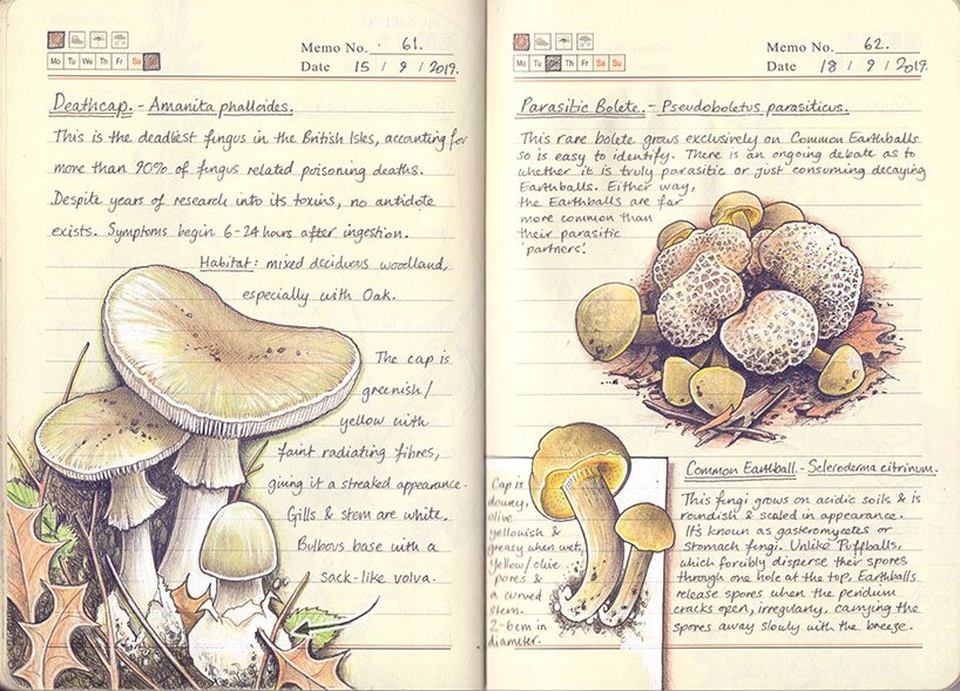 Memo No. 61.
Mo Tu We Th Fr Sa
Date 15 / 9 / 2019.
Deathcap. - Amanita phalloides.
This is the deadliest fungus in the British Isles, accounting for
more than 90% of fungus related poisoning deaths.
Despite years of research into its toxins, no antidote
exists. Symptoms begin 6-24 hours after ingestion.
Habitat: mixed deciduous woodland,
especially with Oak.
The cap is
greenish/
yellow with
faint radiating fibres,
giving it a streaked appearance.
Gills & stem are white.
Bulbous base with a
sack-like volva.
Memo No. 62.
Mo Tu Th Fr Sa Su
Date 18 / 9 / 2019.
Parasitic Bolete. - Pseudoboletus parasiticus.
This rare bolete grows exclusively on Common Earthballs
so is easy to identify. There is an ongoing debate as to
whether it is truly parasitic or just consuming decaying
Earthballs. Either way,
the Earthballs are far
more common than
their parasitic
'partners'.
Cap is
downy,
olive
yellowish &
greasy when wet,
yellow/olive
pores &
a curved
stem.
2-6cm in
diameter.
Common Earthball. - Scleroderma citrinum.
This fungi grows on acidic soils & is
roundish & scaled in appearance.
It's known as gasteromycetes or
stomach fungi. Unlike Puffballs,
which forcibly disperse their spores
through one hole at the top, Earthballs
release spores when the peridium
cracks open, irregularly, carrying the
spores away slowly with the breeze.